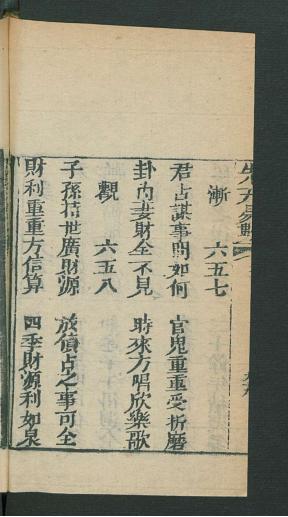 漸　六五七
君占謀事問如何　官鬼重重受折磨
卦內妻財全不見　時來方唱欣樂歌
觀　六五八
子孫持世廣財源　放債点之事可全
財利重重方信算　四季財源利如泉